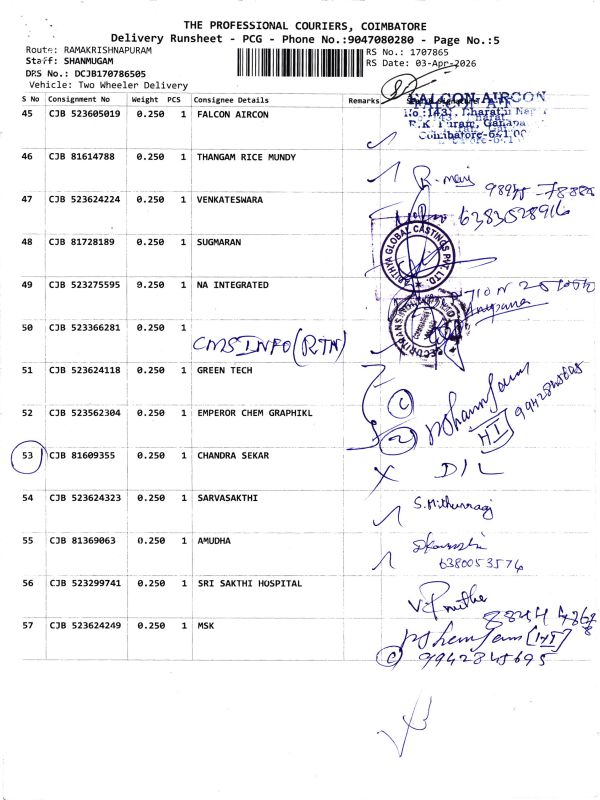 THE PROFESSIONAL COURIERS, COIMBATORE
Delivery Runsheet - PCG - Phone No.:9047080280 - Page No.:5
Route: RAMAKRISHNAPURAM
RS No.: 1707865
Staff: SHANMUGAM
RS Date: 03-Apr-2026
DRS No.: DCJB170786505
Vehicle: Two Wheeler Delivery
S No Consignment No Weight PCS Consignee Details Remarks
FALCON AIRCON
45 CJB 523605019 0.250 1 FALCON AIRCON
46 CJB 81614788 0.250 1 THANGAM RICE MUNDY
47 CJB 523624224 0.250 1 VENKATESWARA
6383528916
48 CJB 81728189 0.250 1 SUGMARAN
GLOBAL CASTINGS PVT. LTD.
49 CJB 523275595 0.250 1 NA INTEGRATED
50 CJB 523366281 0.250 1
CMS INFO (RTN)
51 CJB 523624118 0.250 1 GREEN TECH
52 CJB 523562304 0.250 1 EMPEROR CHEM GRAPHIKL
9942845695
53 CJB 81609355 0.250 1 CHANDRA SEKAR
D/L
54 CJB 523624323 0.250 1 SARVASAKTHI
55 CJB 81369063 0.250 1 AMUDHA
6380053576
56 CJB 523299741 0.250 1 SRI SAKTHI HOSPITAL
57 CJB 523624249 0.250 1 MSK
9942845695